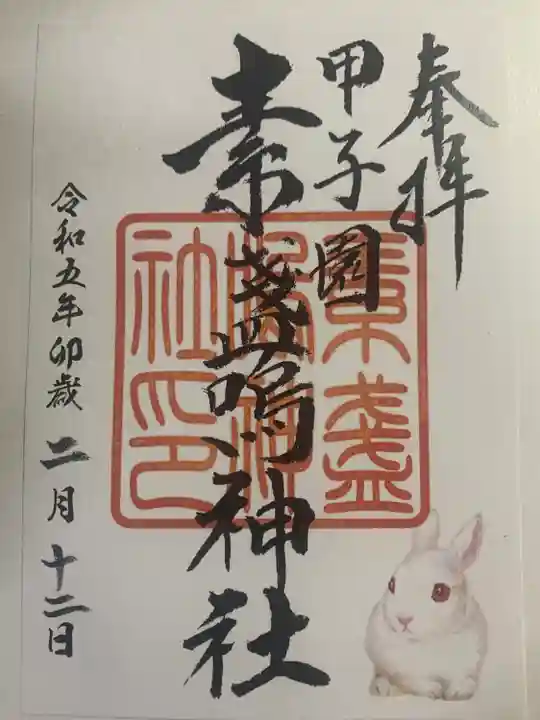 奉拝
甲子園
素盞嗚神社
素盞
嗚神
社印
令和五年卯歳 二月十二日